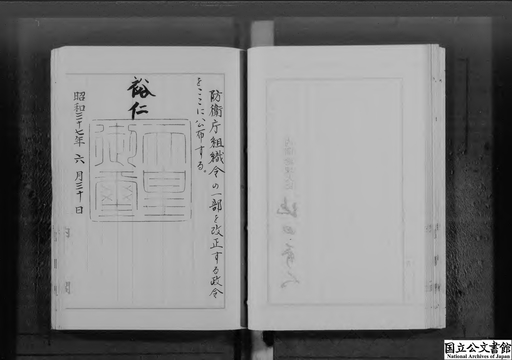 防衛庁組織令の一部を改正する政令
をここに公布する。
裕仁
天皇
御璽
昭和三十七年 六月三十日
国立公文書館
National Archives of Japan